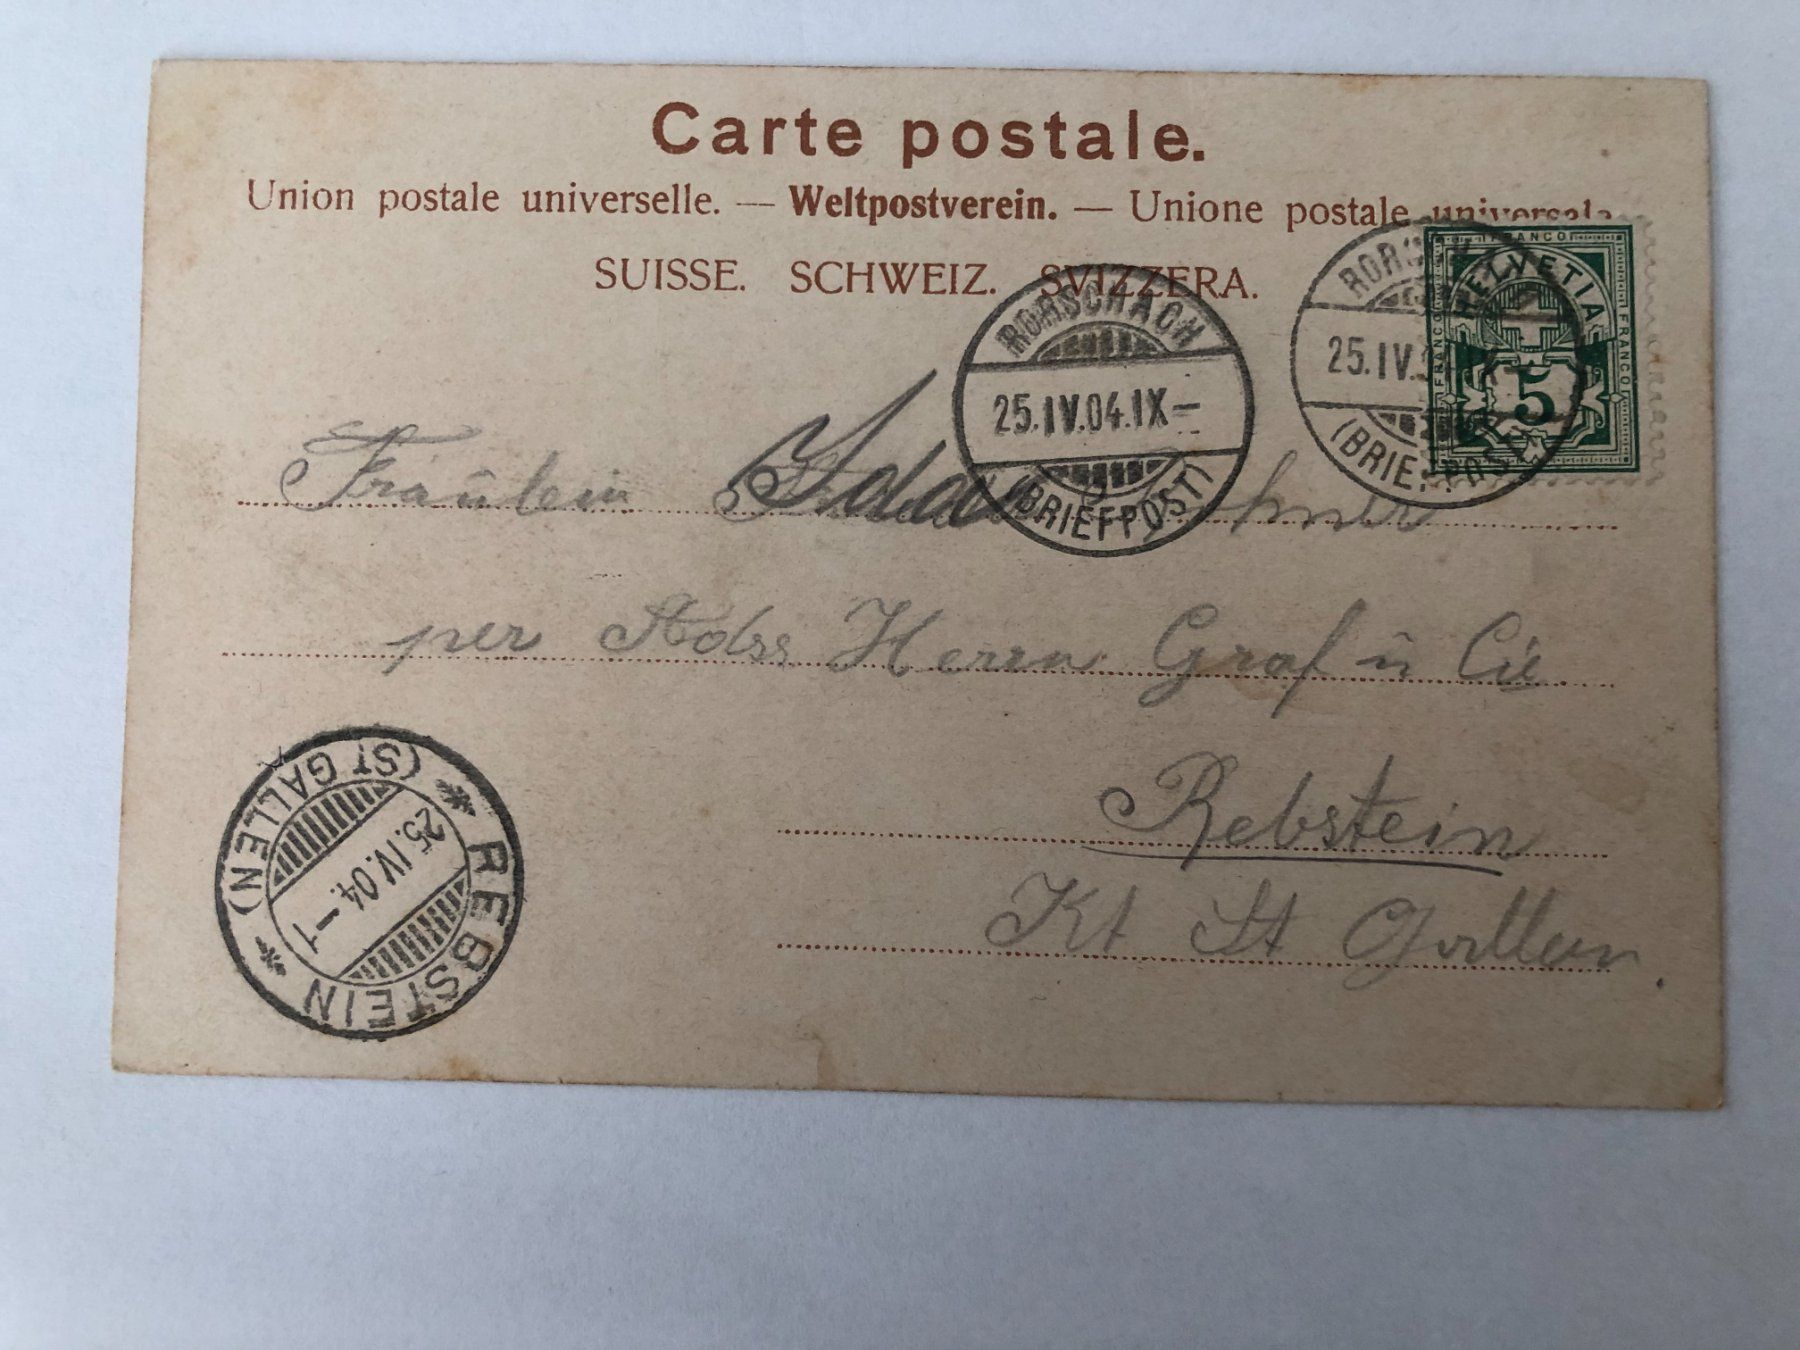 Carte postale.
Union postale universelle. — Weltpostverein. — Unione postale universale
SUISSE. SCHWEIZ. SVIZZERA.
FRANCO
HELVETIA
FRANCO
FRANCO
5
RORSCHACH
25.IV.04.IX–
(BRIEFPOST)
RORSCHACH
25.IV.
(BRIEFPOST)
Fräulein Ida
per Adss Herrn Graf ū Cie.
Rebstein
Kt St Gallen.
REBSTEIN
25.IV.04.–1
(ST GALLEN)